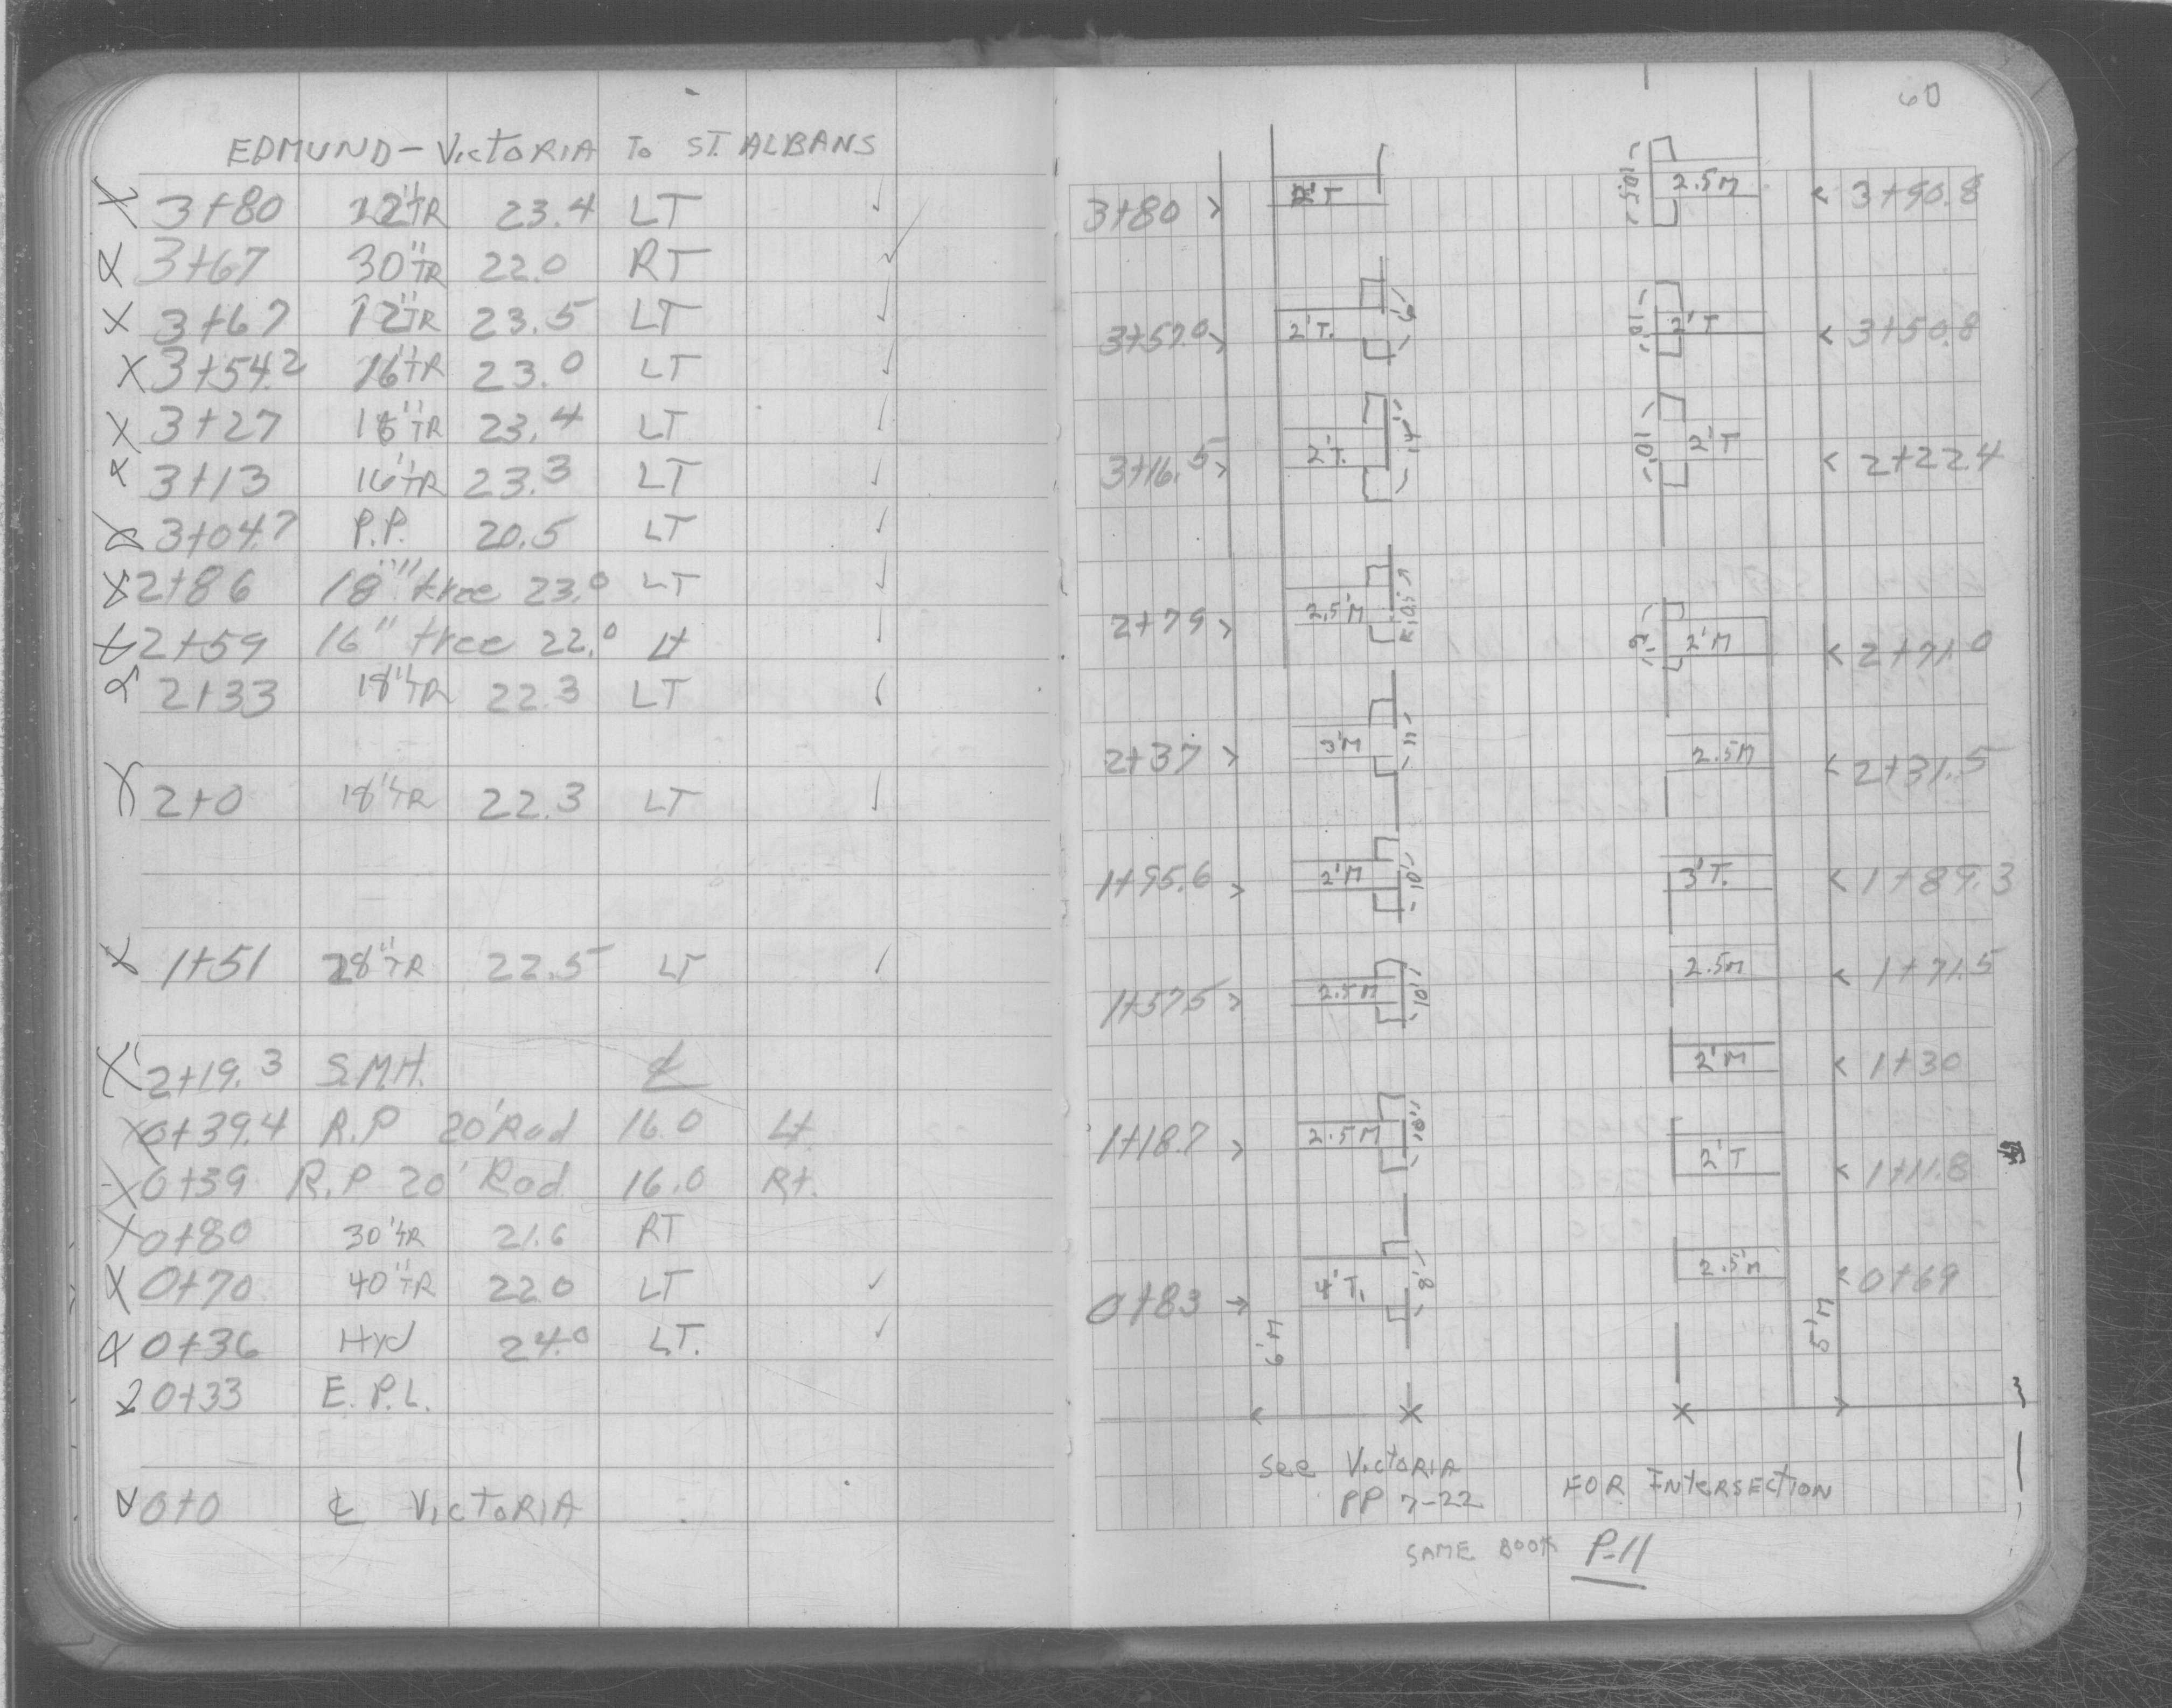 EDMUND – VICTORIA TO ST. ALBANS
3+80 12" TR 23.4 LT ✓
3+67 30" TR 22.0 RT ✓
3+67 12" TR 23.5 LT ✓
3+54.2 16" TR 23.0 LT ✓
3+27 TR 23.4 LT ✓
3+13 16" TR 23.3 LT ✓
3+04.7 P.P. 20.5 LT ✓
2+86 18" tree 23.0 LT ✓
2+59 16" tree 22.0 Lt ✓
2+33 18" TR 22.3 LT ✓
2+0 18" TR 22.3 LT ✓
1+51 28" TR 22.5 LT ✓
2+19.3 S.M.H. ℄
0+39.4 R.P 20' Rad 16.0 Lt.
0+39 R.P 20' Rad 16.0 Rt.
0+80 30" TR 21.6 RT
0+70 40" TR 22.0 LT ✓
0+36 Hyd 24.0 LT. ✓
0+33 E.P.L.
0+0 ℄ VICTORIA
60
3+80 2'T 10.5' 2.5M 3+90.8
3+57.0 2'T. 9' 10' 2'T 3+50.8
3+16.5 2'T. 14' 10' 2'T 2+22.4
2+79 2.5'M 10.5' 9' 2'M 2+71.0
2+37 3'M 11' 2.5M 2+31.5
1+95.6 2'M 10' 3'T. 1+89.3
1+57.5 2.5M 10' 2.5M 1+71.5
2'M 1+30
1+18.7 2.5M 10' 2'T 1+11.8
0+83 4'T. 8' 2.5'M 0+69
6'M 5'M
See VICTORIA FOR INTERSECTION
PP 7-22
SAME BOOK P-11